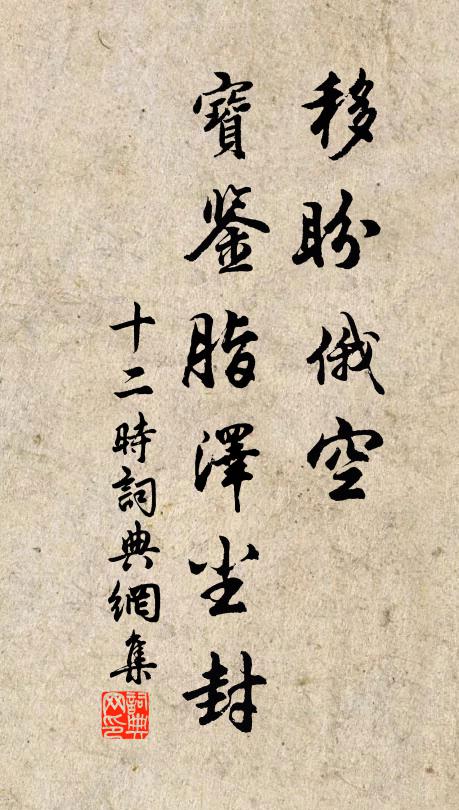 移盼俄空
寶鑒脂澤尘封
十二時詞典網集
詞典
网印